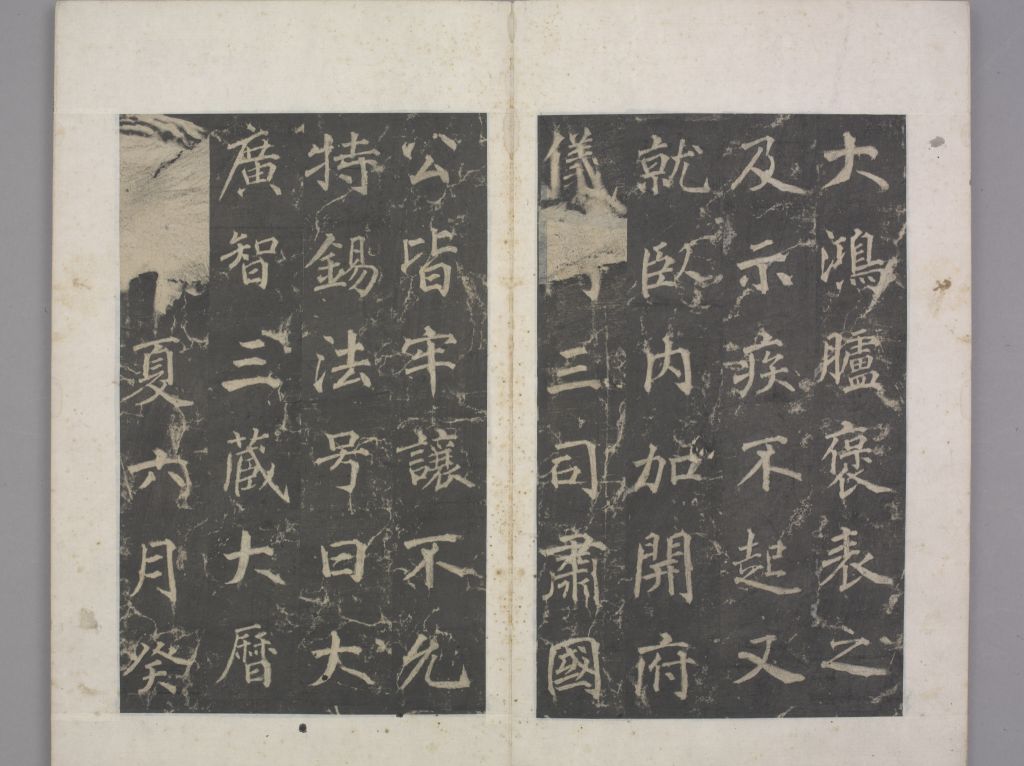 大鴻臚褒表之
及示疾不起又
就臥内加開府
儀同三司肅國
公皆牢讓不允
特錫法号曰大
廣智三蔵大曆
夏六月癸